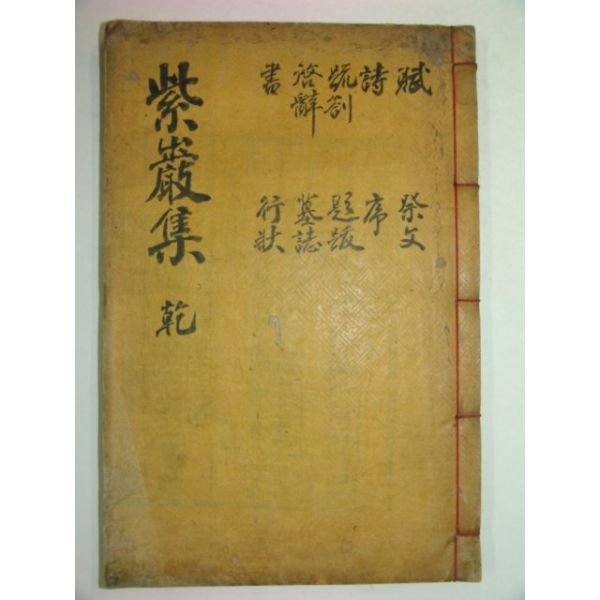 紫巖集 乾
賦
詩
疏劄
啓辭
書
祭文
序
題跋
墓誌
行狀